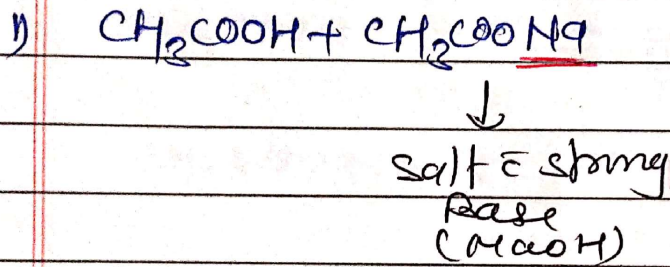 1) CH₃COOH + CH₃COONa
↓
Salt c̄ strong
Base
(NaOH)